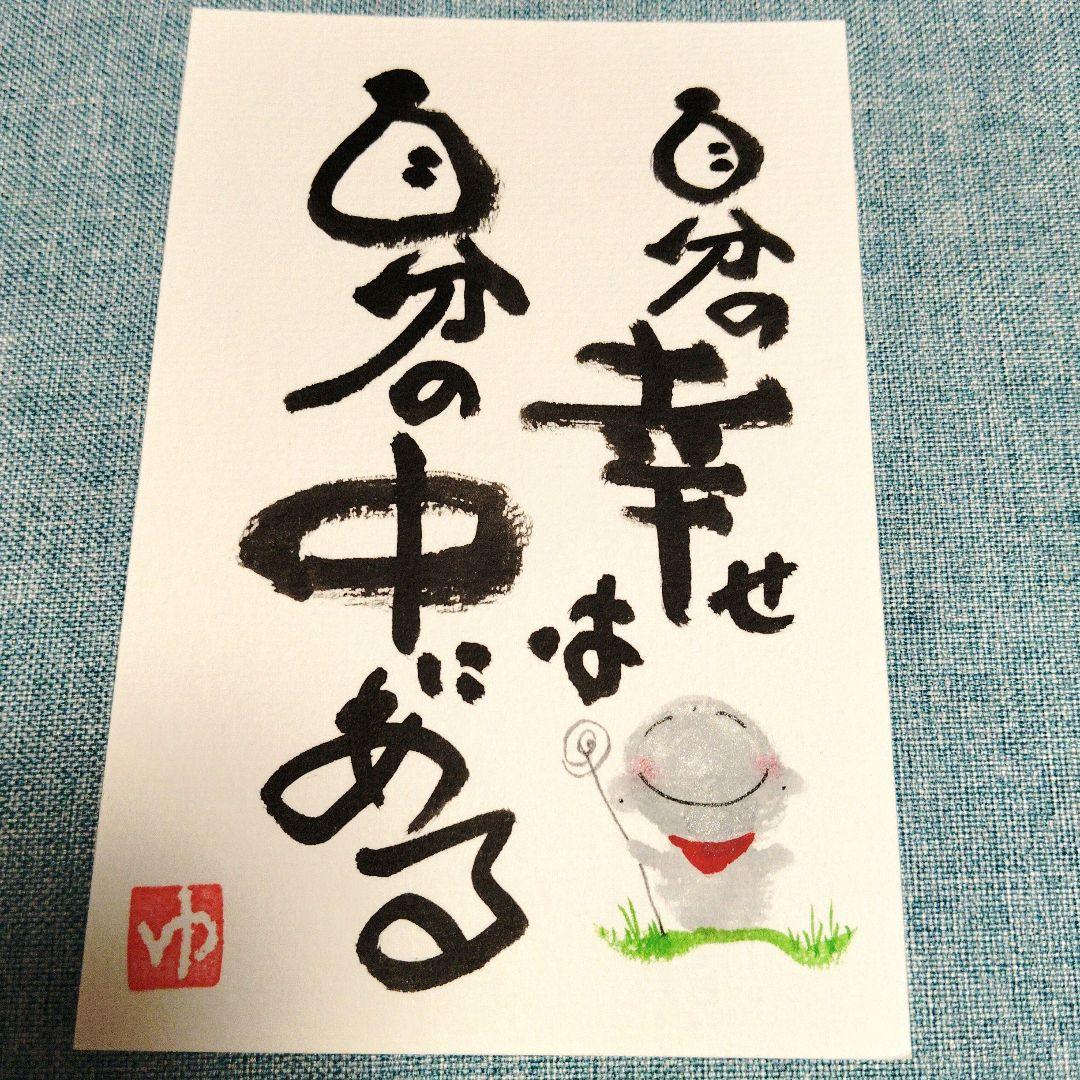 自分の幸せは
自分の中にある
ゆ